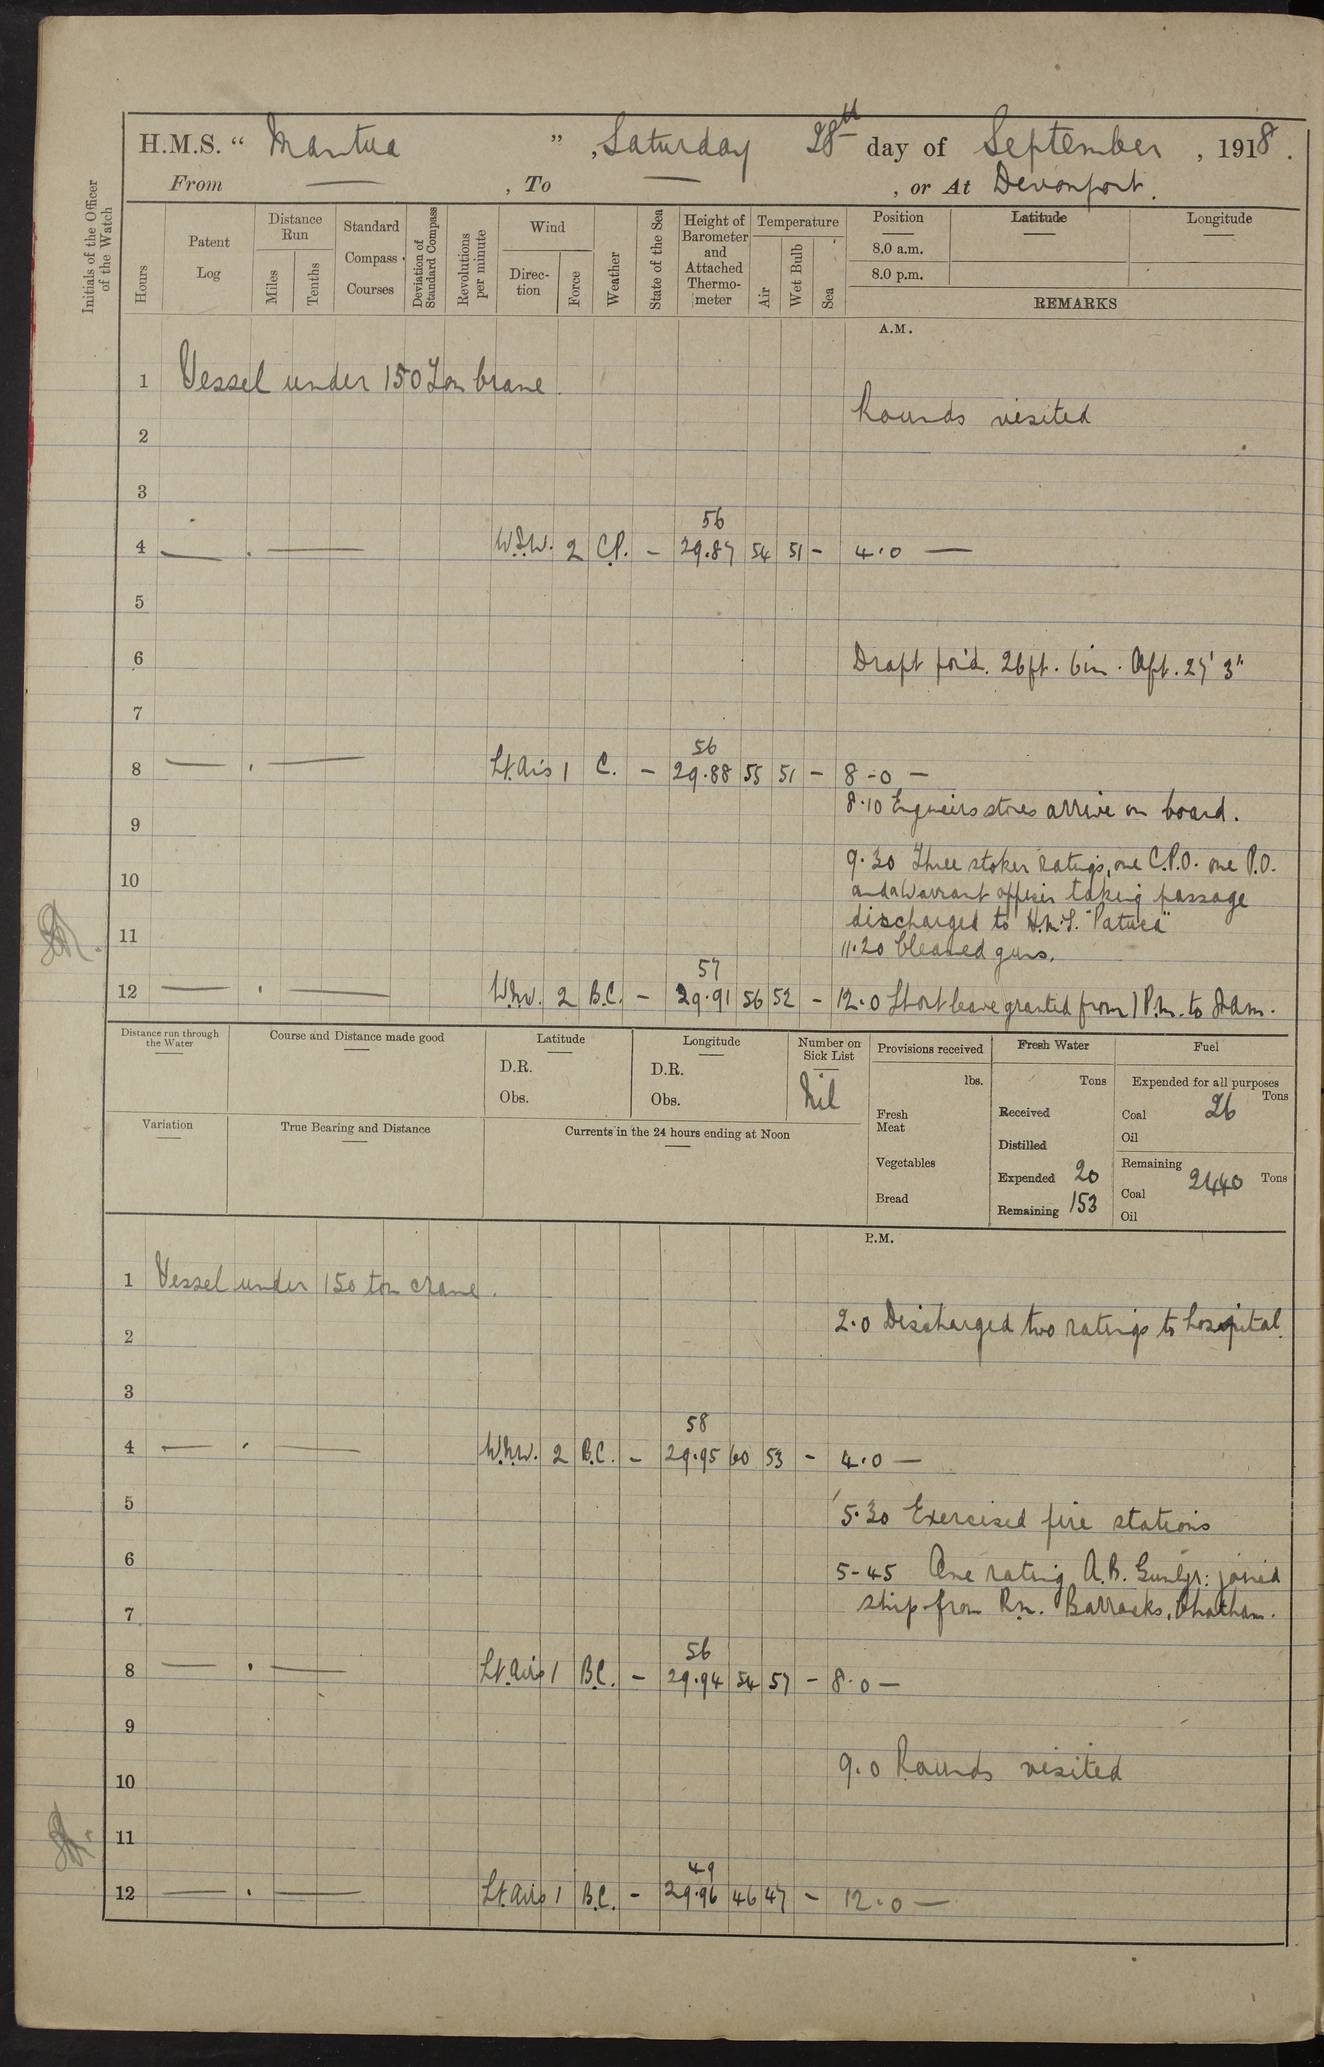 H.M.S. “ Mantua ” , Saturday 28th day of September , 1918 .
From — , To — , or At Devonport.
Initials of the Officer of the Watch
Hours
Patent Log
Distance Run
Miles
Tenths
Standard Compass Courses
Deviation of Standard Compass
Revolutions per minute
Wind
Direc-tion
Force
Weather
State of the Sea
Height of Barometer and Attached Thermo-meter
Temperature
Air
Wet Bulb
Sea
Position
Latitude
Longitude
8.0 a.m.
8.0 p.m.
REMARKS
A.M.
1 Vessel under 150 Ton Crane.
Rounds visited
2
3
56
4 — . — W.S.W. 2 C.P. – 29.87 54 51 – 4.0 —
5
6 Draft for'd. 26ft. 6in. Aft. 27' 3"
7
56
8 — . — Lt. Airs 1 C. – 29.88 55 51 – 8-0 —
8.10 Engineers stores arrive on board.
9
9.30 Three stoker ratings, one C.P.O. one P.O.
10 and a Warrant officer taking passage
discharged to H.M.S. "Patuca"
11 11.20 Cleared guns.
57
12 — . — W.N.W. 2 B.C. – 29.91 56 52 – 12.0 Short leave granted from 1 P.m. to 7am.
Distance run through the Water
Course and Distance made good
Latitude
D.R.
Obs.
Longitude
D.R.
Obs.
Number on Sick List
Nil
Provisions received
lbs.
Fresh Meat
Vegetables
Bread
Fresh Water
Tons
Received
Distilled
Expended 20
Remaining 153
Fuel
Expended for all purposes
Tons
Coal 26
Oil
Remaining
Coal 2440 Tons
Oil
Variation
True Bearing and Distance
Currents in the 24 hours ending at Noon
P.M.
1 Vessel under 150 ton crane.
2.0 Discharged two ratings to hospital.
2
3
58
4 — . — W.N.W. 2 B.C. – 29.95 60 53 – 4.0 —
5 5.30 Exercised fire stations
6 5-45 One rating A.B. Gunlyr: joined
7 ship from R.N. Barracks, Chatham.
56
8 — . — Lt. Airs 1 B.C. – 29.94 54 57 – 8.0 —
9
9.0 Rounds visited
10
11
49
12 — . — Lt. Airs 1 B.C. – 29.96 46 47 – 12.0 —